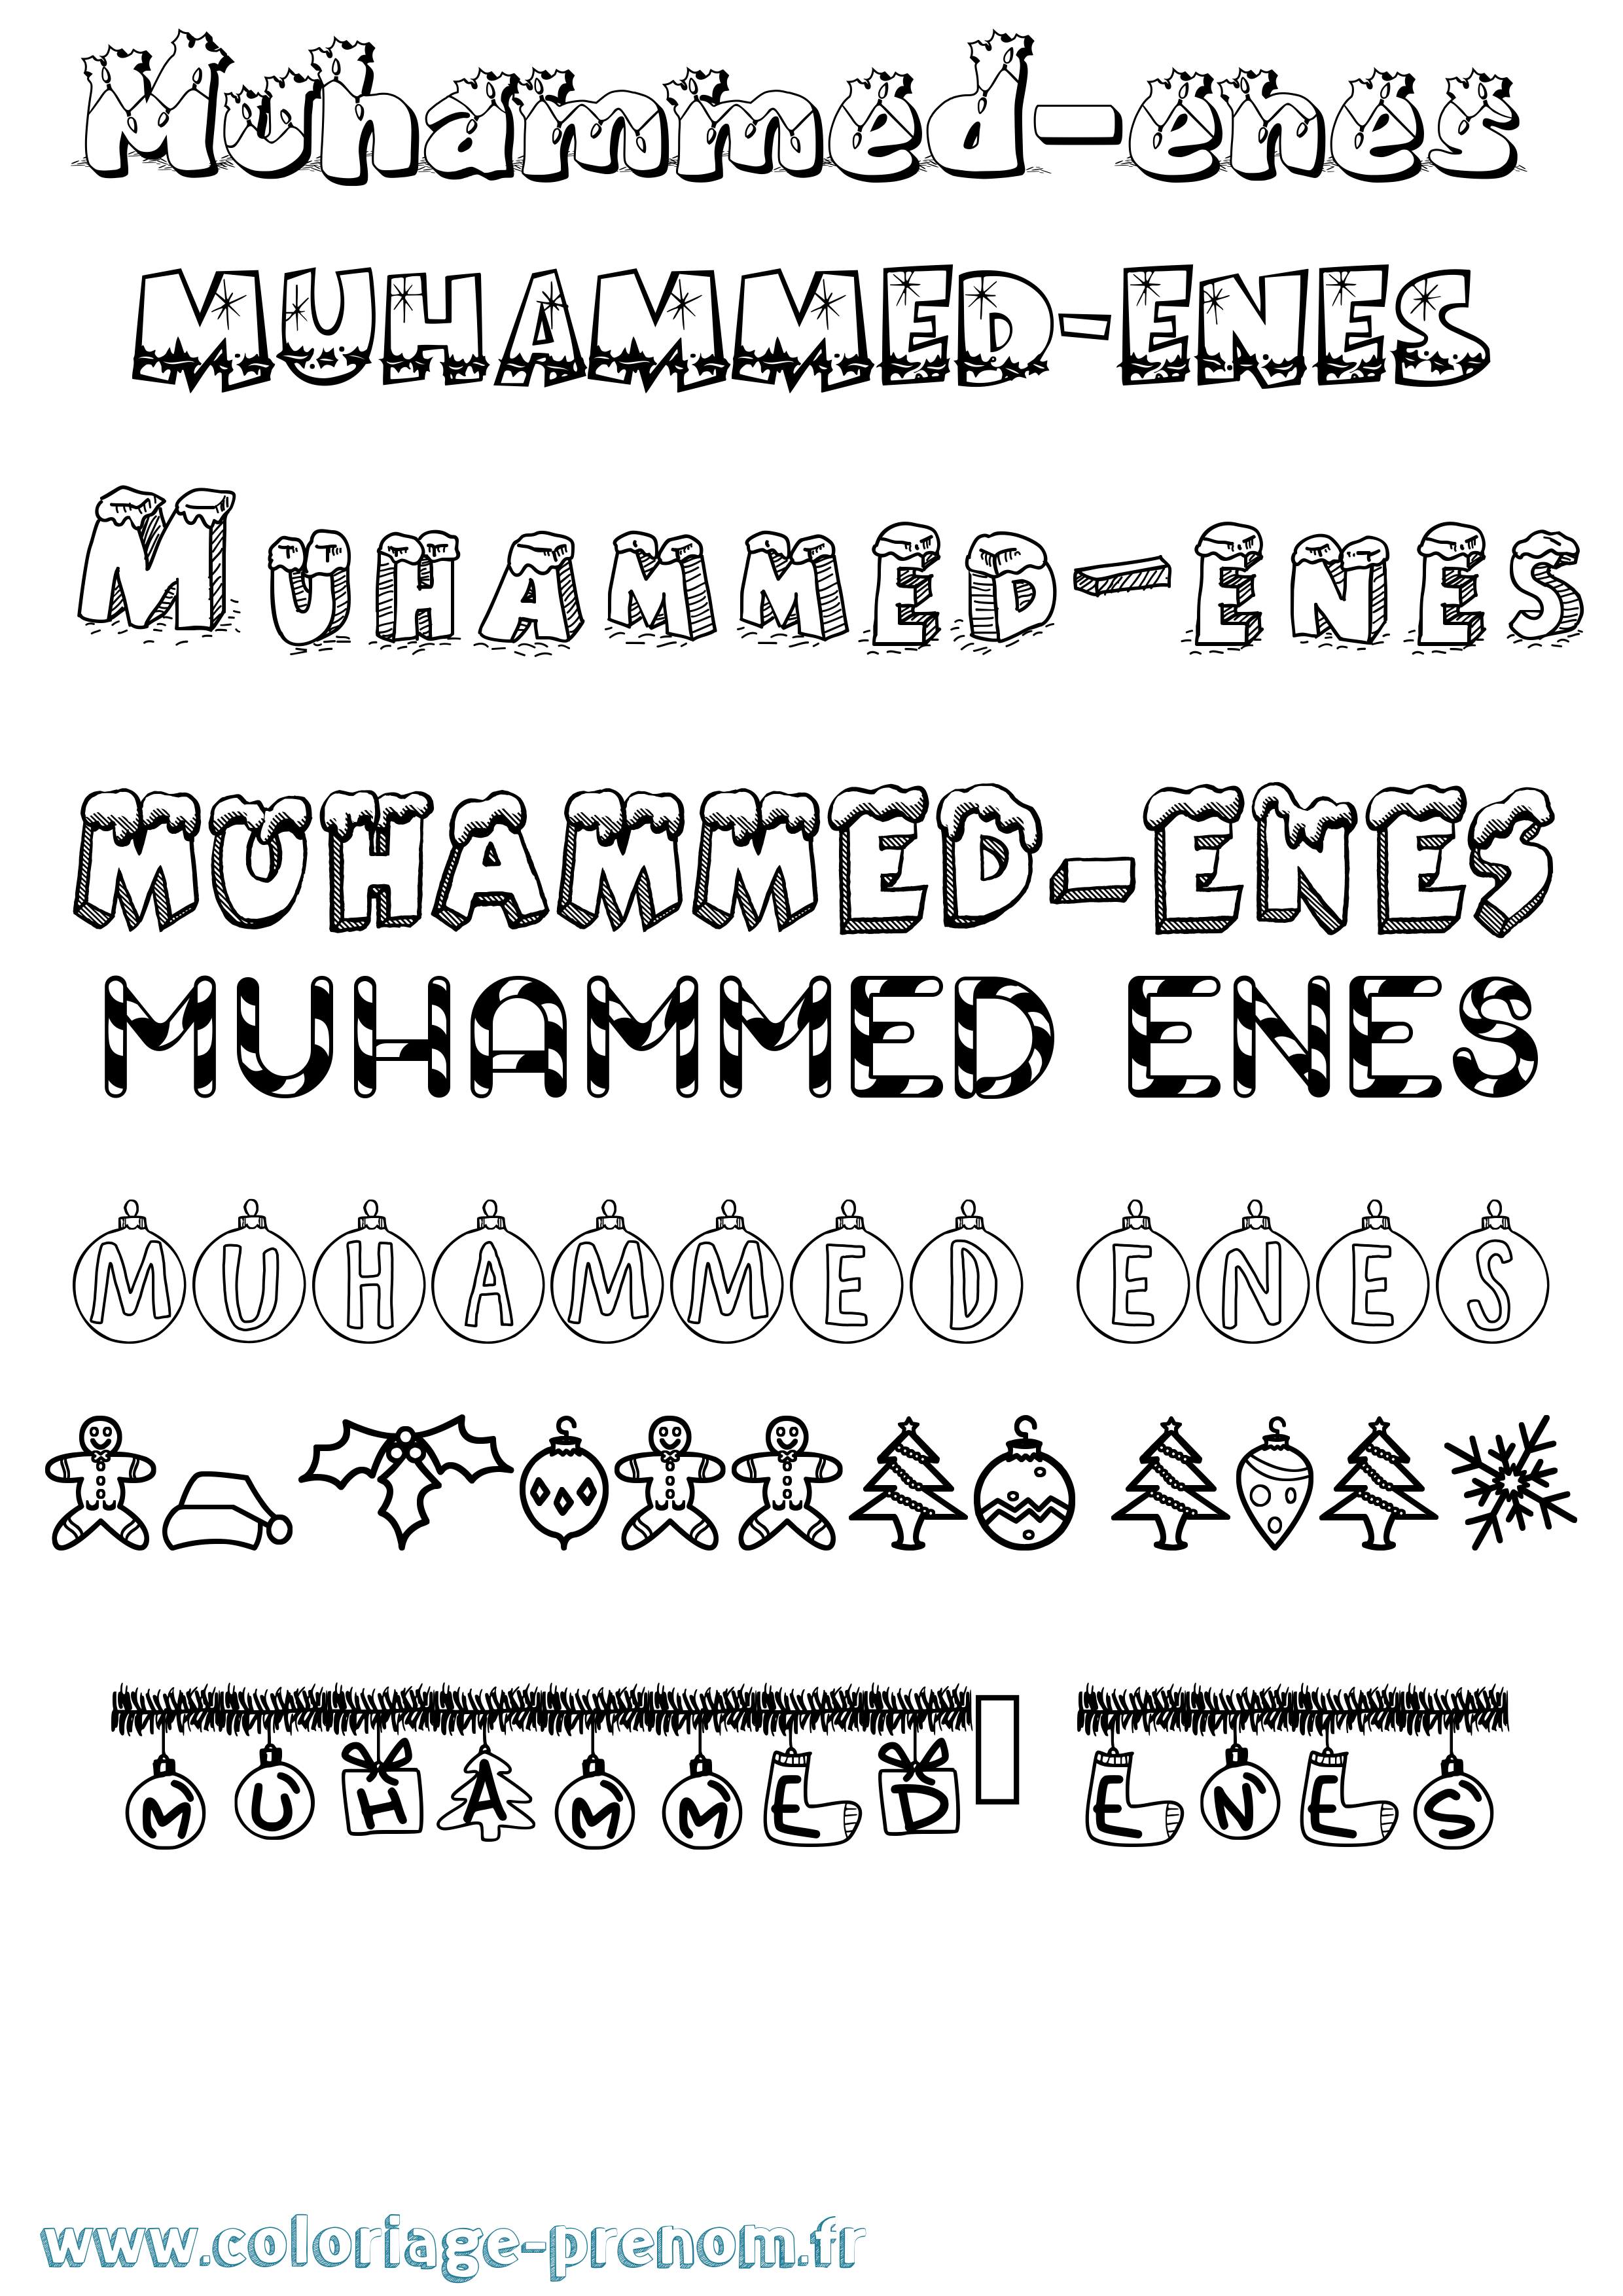 Muhammed-enes
MUHAMMED-ENES
MUHAMMED-ENES
MUHAMMED-ENES
MUHAMMED ENES
MUHAMMED ENES
MUHAMMED ENES
www.coloriage-prenom.fr